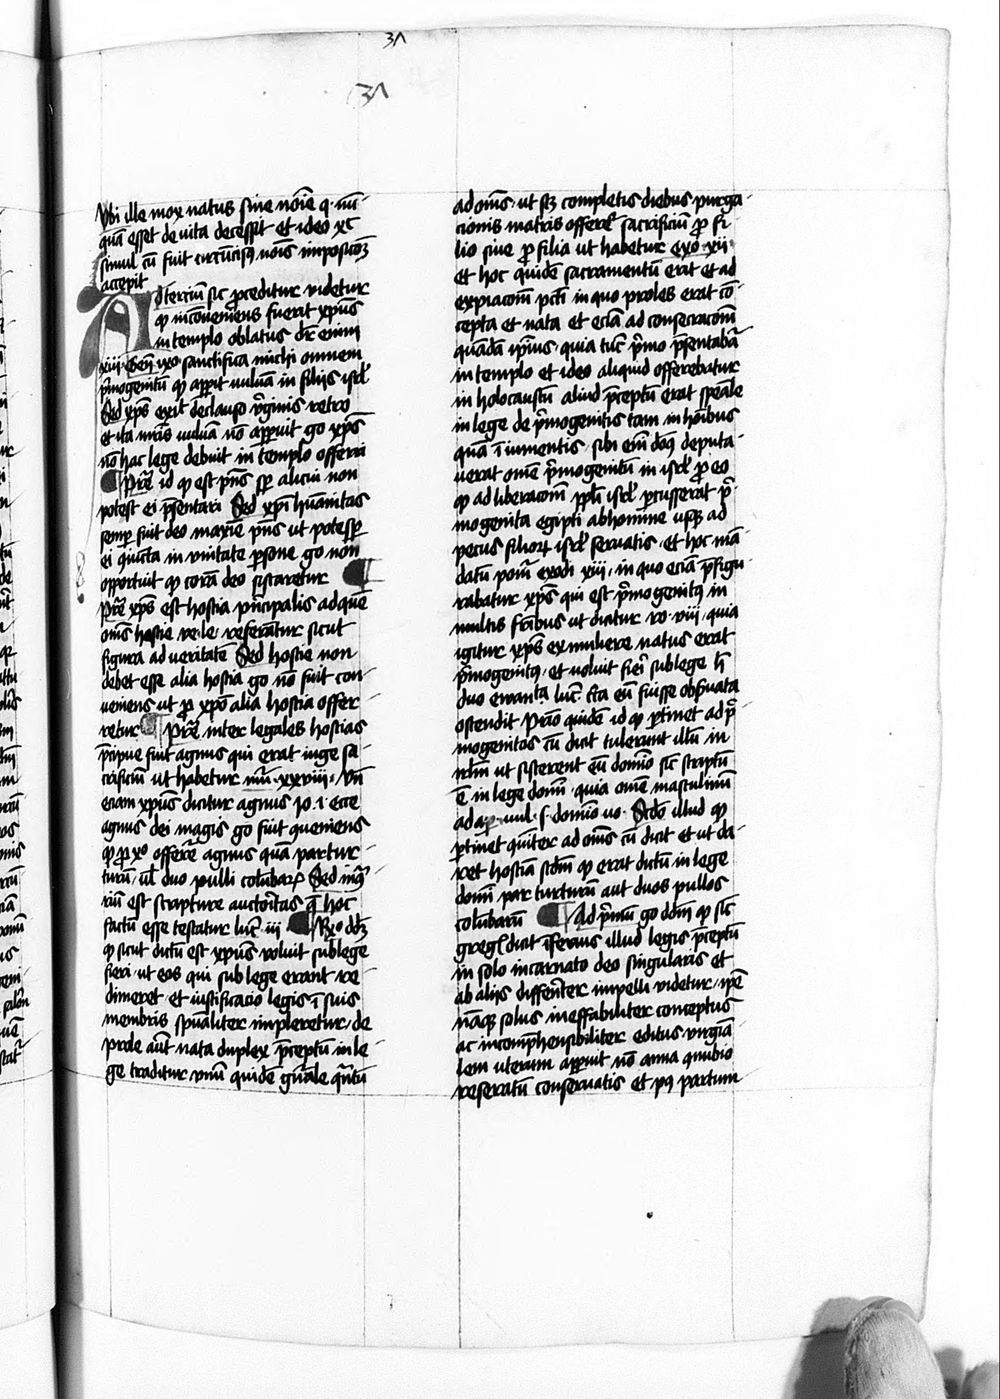 31
31
Ubi ille mox natus sine noīe q nū
quā esset de vita decessit et ideo xc
simul cū fuit circūcisꝰ nois impositoꝫ
accepit
Ad terciū sic ꝓceditur videtur
ꝙ incōveniens fuerit xpūs
in templo oblatus dr̄ enim
xiii exo sanctifica michi omnem
p̄mogenitū ꝙ apperit vuluā in filijs isrl̄
Sed xp̄s exiit de clauso v̄ginis vetro
et ita mr̄is vuluā nō apperuit g̊ xp̄s
nō hac lege debuit in templo offerri
Pret̄ id ꝙ est p̄ns sp̄ alicui non
potest ei p̄sentari Sed xpī hūanitas
semp fuit deo maxīe p̄ns ut pote sp̄
ei qiūcta in vnitate ꝑsone g̊ non
opportuit ꝙ corā deo sistaretur
Pret̄ xp̄s est hostia p̄ncipalis ad quē
om̄s hostie ve le referūtur sicut
figura ad veritatē Sed hostie non
debet esse alia hostia g̊ nō fuit con
ueniens ut ꝓ xpō alia hostia offer
retur Pret̄ inter legales hostias
p̄cipue fuit agnus qui erat iuge sa
crificiū ut habetur nū xxviii Vn̄
eciam xpūs dicitur agnus Jo i ecce
agnus dei magis g̊ fuit queniens
ꝙ ꝓ xo offerr̄e agnus quā par tur
turū ul̄ duo pulli colūbarꝫ Sed in q̄
riū est scripture auctoritas q̄ hoc
factū esse testatur luc̄ iii Rx̊o ddꝫ
ꝙ sicut dictū est xpūs voluit sub lege
fieri ut eos qui sub lege erant re
dimeret et iustificacio legis ī suis
membris spūaliter impleretur de
prole aūt nata duplex p̄ceptū in le
ge traditur vnū quidē gn̄ale q̄ntū
ad om̄s ut sꝫ completis diebus purga
cionis matris offeret̄ sacrificiū ꝓ fi
lio siue ꝓ filia ut habetur exo xii
et hoc quidē sacramentū erat et ad
expiacōm pcti in quo proles erat cō
cepta et nata et eciā ad consecracōm
quādā ip̄ius quia tūc p̄mo p̄sentabat̄
in templo et ideo aliquid offerebatur
in holocaustū aliud p̄ceptū erat speāle
in lege de p̄mogenitis tam in hōibus
quā ī iumentis sibi em̄ dōs deputa
uerat om̄e p̄mogenitū in isrl̄ ꝓ eo
ꝙ ad liberacōm ppl̄i isrl̄ ꝑcusserat p̄
mogenita egipti ab homine usqꝫ ad
pecus filiorꝫ isrl̄ seruatis et hoc mā
datū ponit̄ exodi xiii in quo eciā p̄figu
rabatur xp̄s qui est p̄mogenitꝰ in
multis frībus ut dicitur ro viii quia
igitur xp̄s ex muliere natus erat
p̄mogenitꝰ et voluit fieri sub lege h̄
duo ewanta luc̄ c̄ca eū fuisse obseruata
ostendit p̄mo quidē id ꝙ ꝑtinet ad p̄
mogenitos cū dicit tulerunt illū in
irl̄m ut sisterent eū domīo sic̄ scriptū
ē in lege domī quia om̄e masculinū
ad ap̄ vul s domīo vo Sc̄do illud ꝙ
ꝑtinet qūiter ad om̄s cū dicit et ut da
ret hostiā scdm̄ ꝙ erat dictū in lege
domī par turturū aut duos pullos
colūbarū Ad p̄mū g̊ ddm̄ ꝙ sic̄
greg̊ dicit īferius illud legis p̄ceptū
in solo incarnato deo singularis et
ab alijs differēter impelli videtur ip̄e
nāqꝫ solus ineffabiliter conceptus
ac incomp̄hensibiliter editus virginā
lem uterum apꝑuit nō anna qnubio
reseratū conseruatis et pꝰ partum